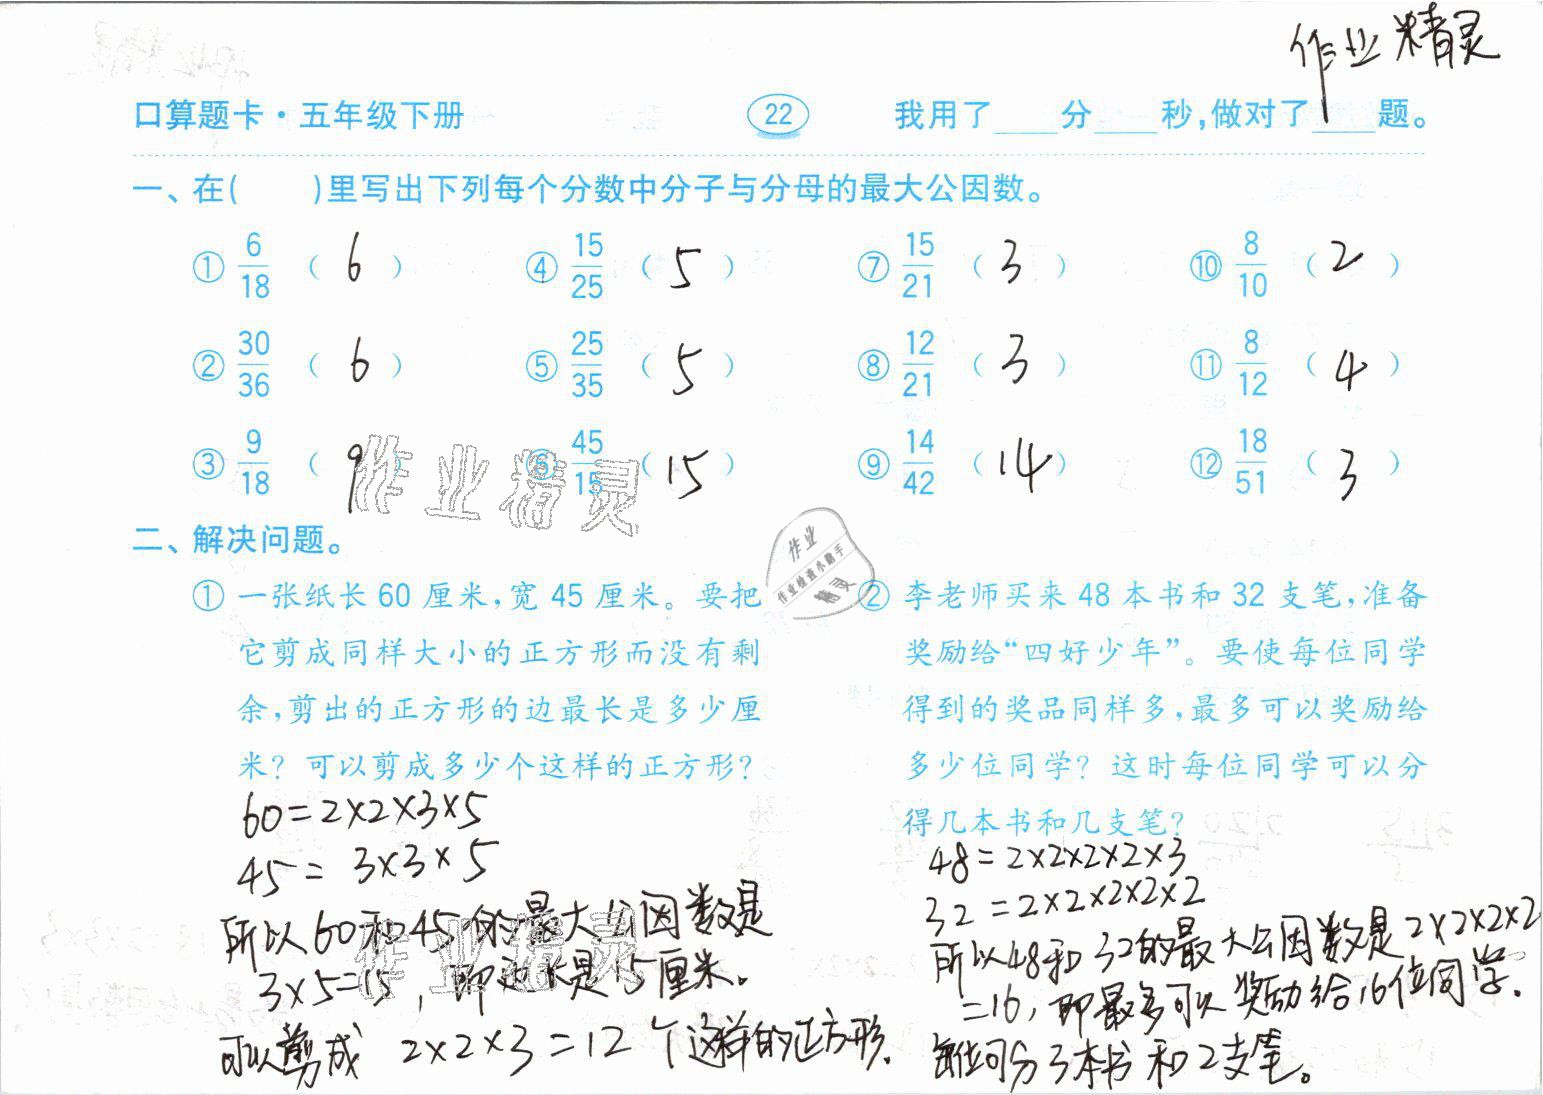 作业精灵
口算题卡·五年级下册 22 我用了____分____秒,做对了____题。
一、在( )里写出下列每个分数中分子与分母的最大公因数。
① 6/18 ( 6 ) ④ 15/25 ( 5 ) ⑦ 15/21 ( 3 ) ⑩ 8/10 ( 2 )
② 30/36 ( 6 ) ⑤ 25/35 ( 5 ) ⑧ 12/21 ( 3 ) ⑪ 8/12 ( 4 )
③ 9/18 ( 9 ) ⑥ 45/15 ( 15 ) ⑨ 14/42 ( 14 ) ⑫ 18/51 ( 3 )
作业精灵
二、解决问题。
作业
作业检查小助手
精灵
① 一张纸长 60 厘米,宽 45 厘米。要把
它剪成同样大小的正方形而没有剩
余,剪出的正方形的边最长是多少厘
米?可以剪成多少个这样的正方形?
60=2×2×3×5
45= 3×3×5
所以60和45的最大公因数是
3×5=15,即边长是15厘米。
可以剪成 2×2×3=12个这样的正方形.
作业精灵
② 李老师买来 48 本书和 32 支笔,准备
奖励给“四好少年”。要使每位同学
得到的奖品同样多,最多可以奖励给
多少位同学?这时每位同学可以分
得几本书和几支笔?
48=2×2×2×2×3
32=2×2×2×2×2
所以48和32的最大公因数是2×2×2×2
=16,即最多可以奖励给16位同学.
每位可分3本书和2支笔。